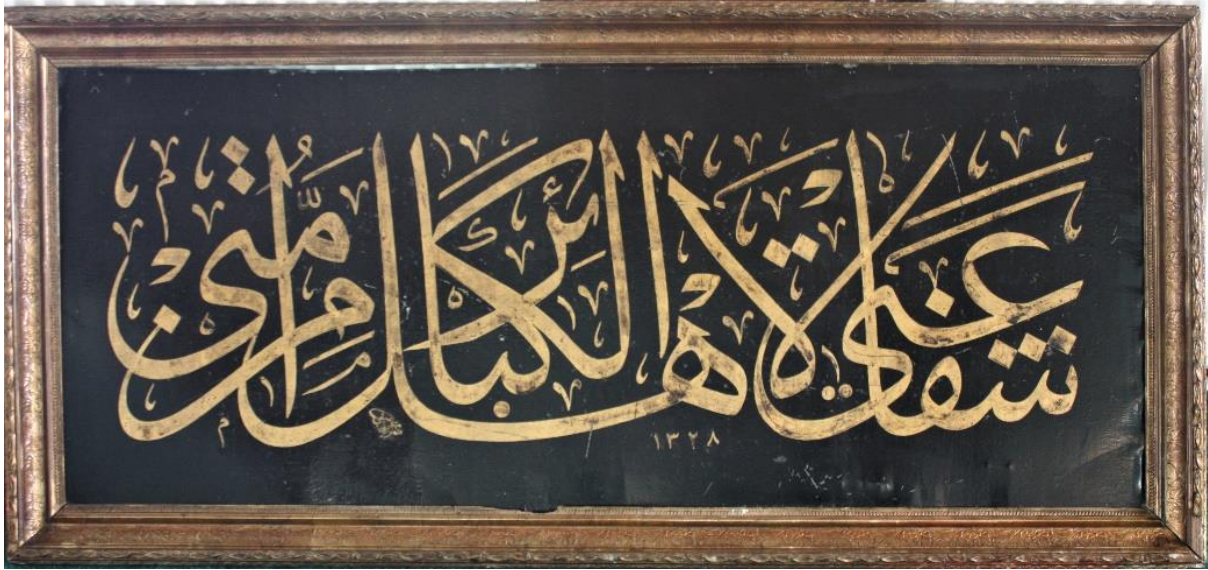 شفاعتى لاهل الكبائر من امتى
١٣٢٨